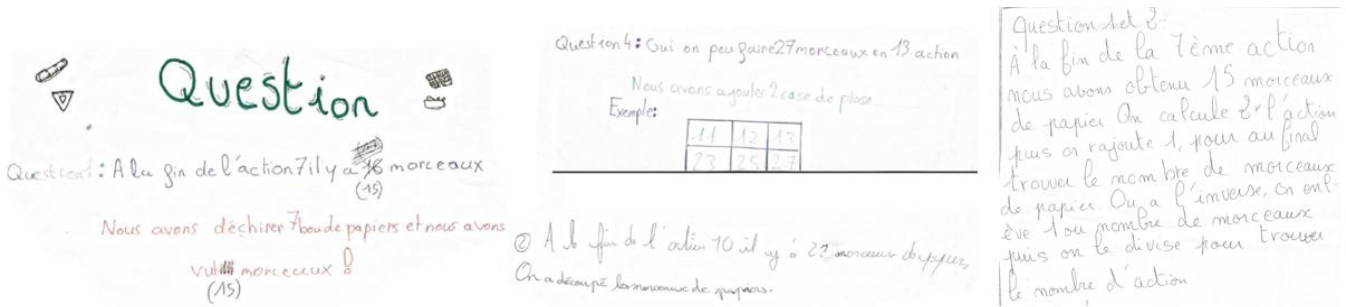 Question
Question 1: A la fin de l'action 7 il y a morceaux
(15)
Nous avons déchirer 7 bou de papiers et nous avons
vu morceaux !
(15)
Question 4: Oui on peu faire 27 morceaux en 13 action
Nous avons ajouter 2 case de plase
Exemple:
11 12 13
23 25 27
② A la fin de l'action 10 il y a morceaux de papiers,
On a découpé les morceaux de papiers.
Question 1 et 2:
À la fin de la 7ème action
nous avons obtenu 15 morceaux
de papier. On calcule 2x l'action
puis on rajoute 1, pour au final
trouver le nombre de morceaux
de papier. Ou a l'inverse, on enl-
ève 1 ou nombre de morceaux
puis on le divise pour trouver
le nombre d'action